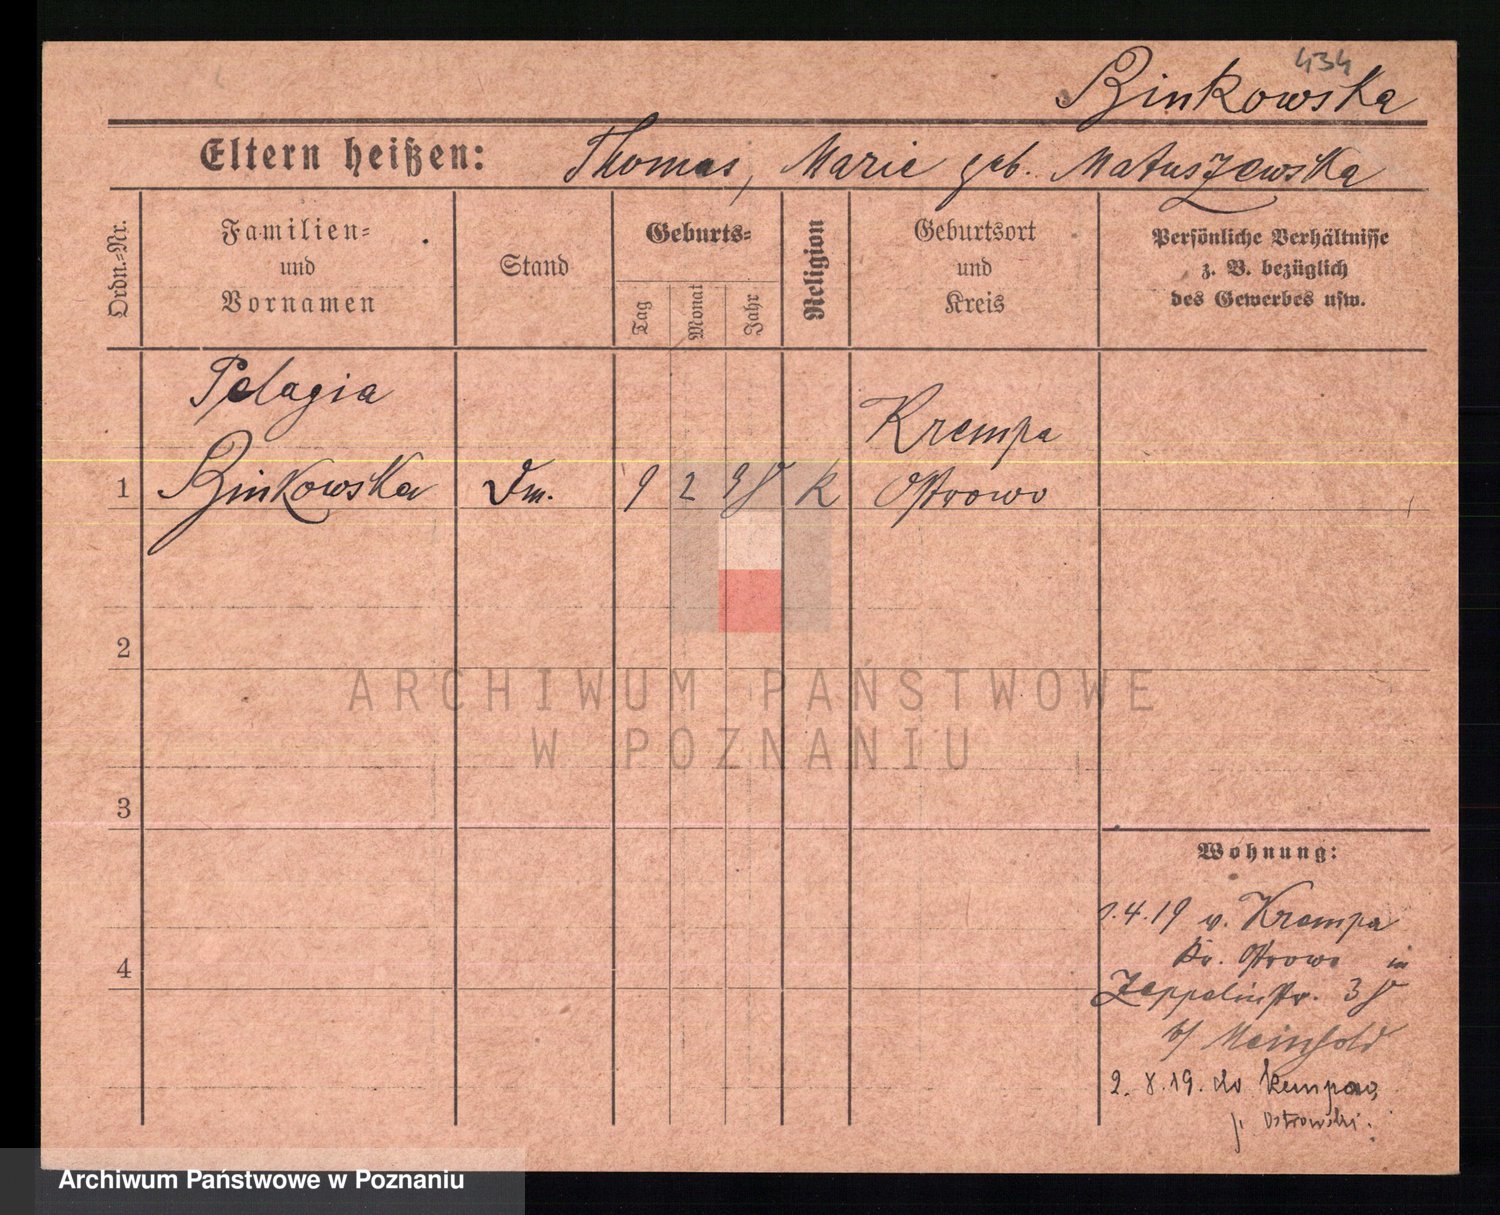 434
Binkowska
Eltern heißen: Thomas, Marie geb. Matuszewska
Ordn.-Nr.
Familien-
und
Vornamen
Stand
Geburts-
Tag
Monat
Jahr
Religion
Geburtsort
und
Kreis
Persönliche Verhältnisse
z. B. bezüglich
des Gewerbes usw.
Pelagia
Krempa
1 Binkowska Dm. 9 2 98 k Ostrowo
2
ARCHIWUM PAŃSTWOWE
W POZNANIU
3
Wohnung:
1.4.19 v. Krempa
Kr. Ostrowo in
4
Zeppelinstr. 38
b/ Meinhold
2. 8. 19. do Kempa
Ostrowski.
Archiwum Państwowe w Poznaniu